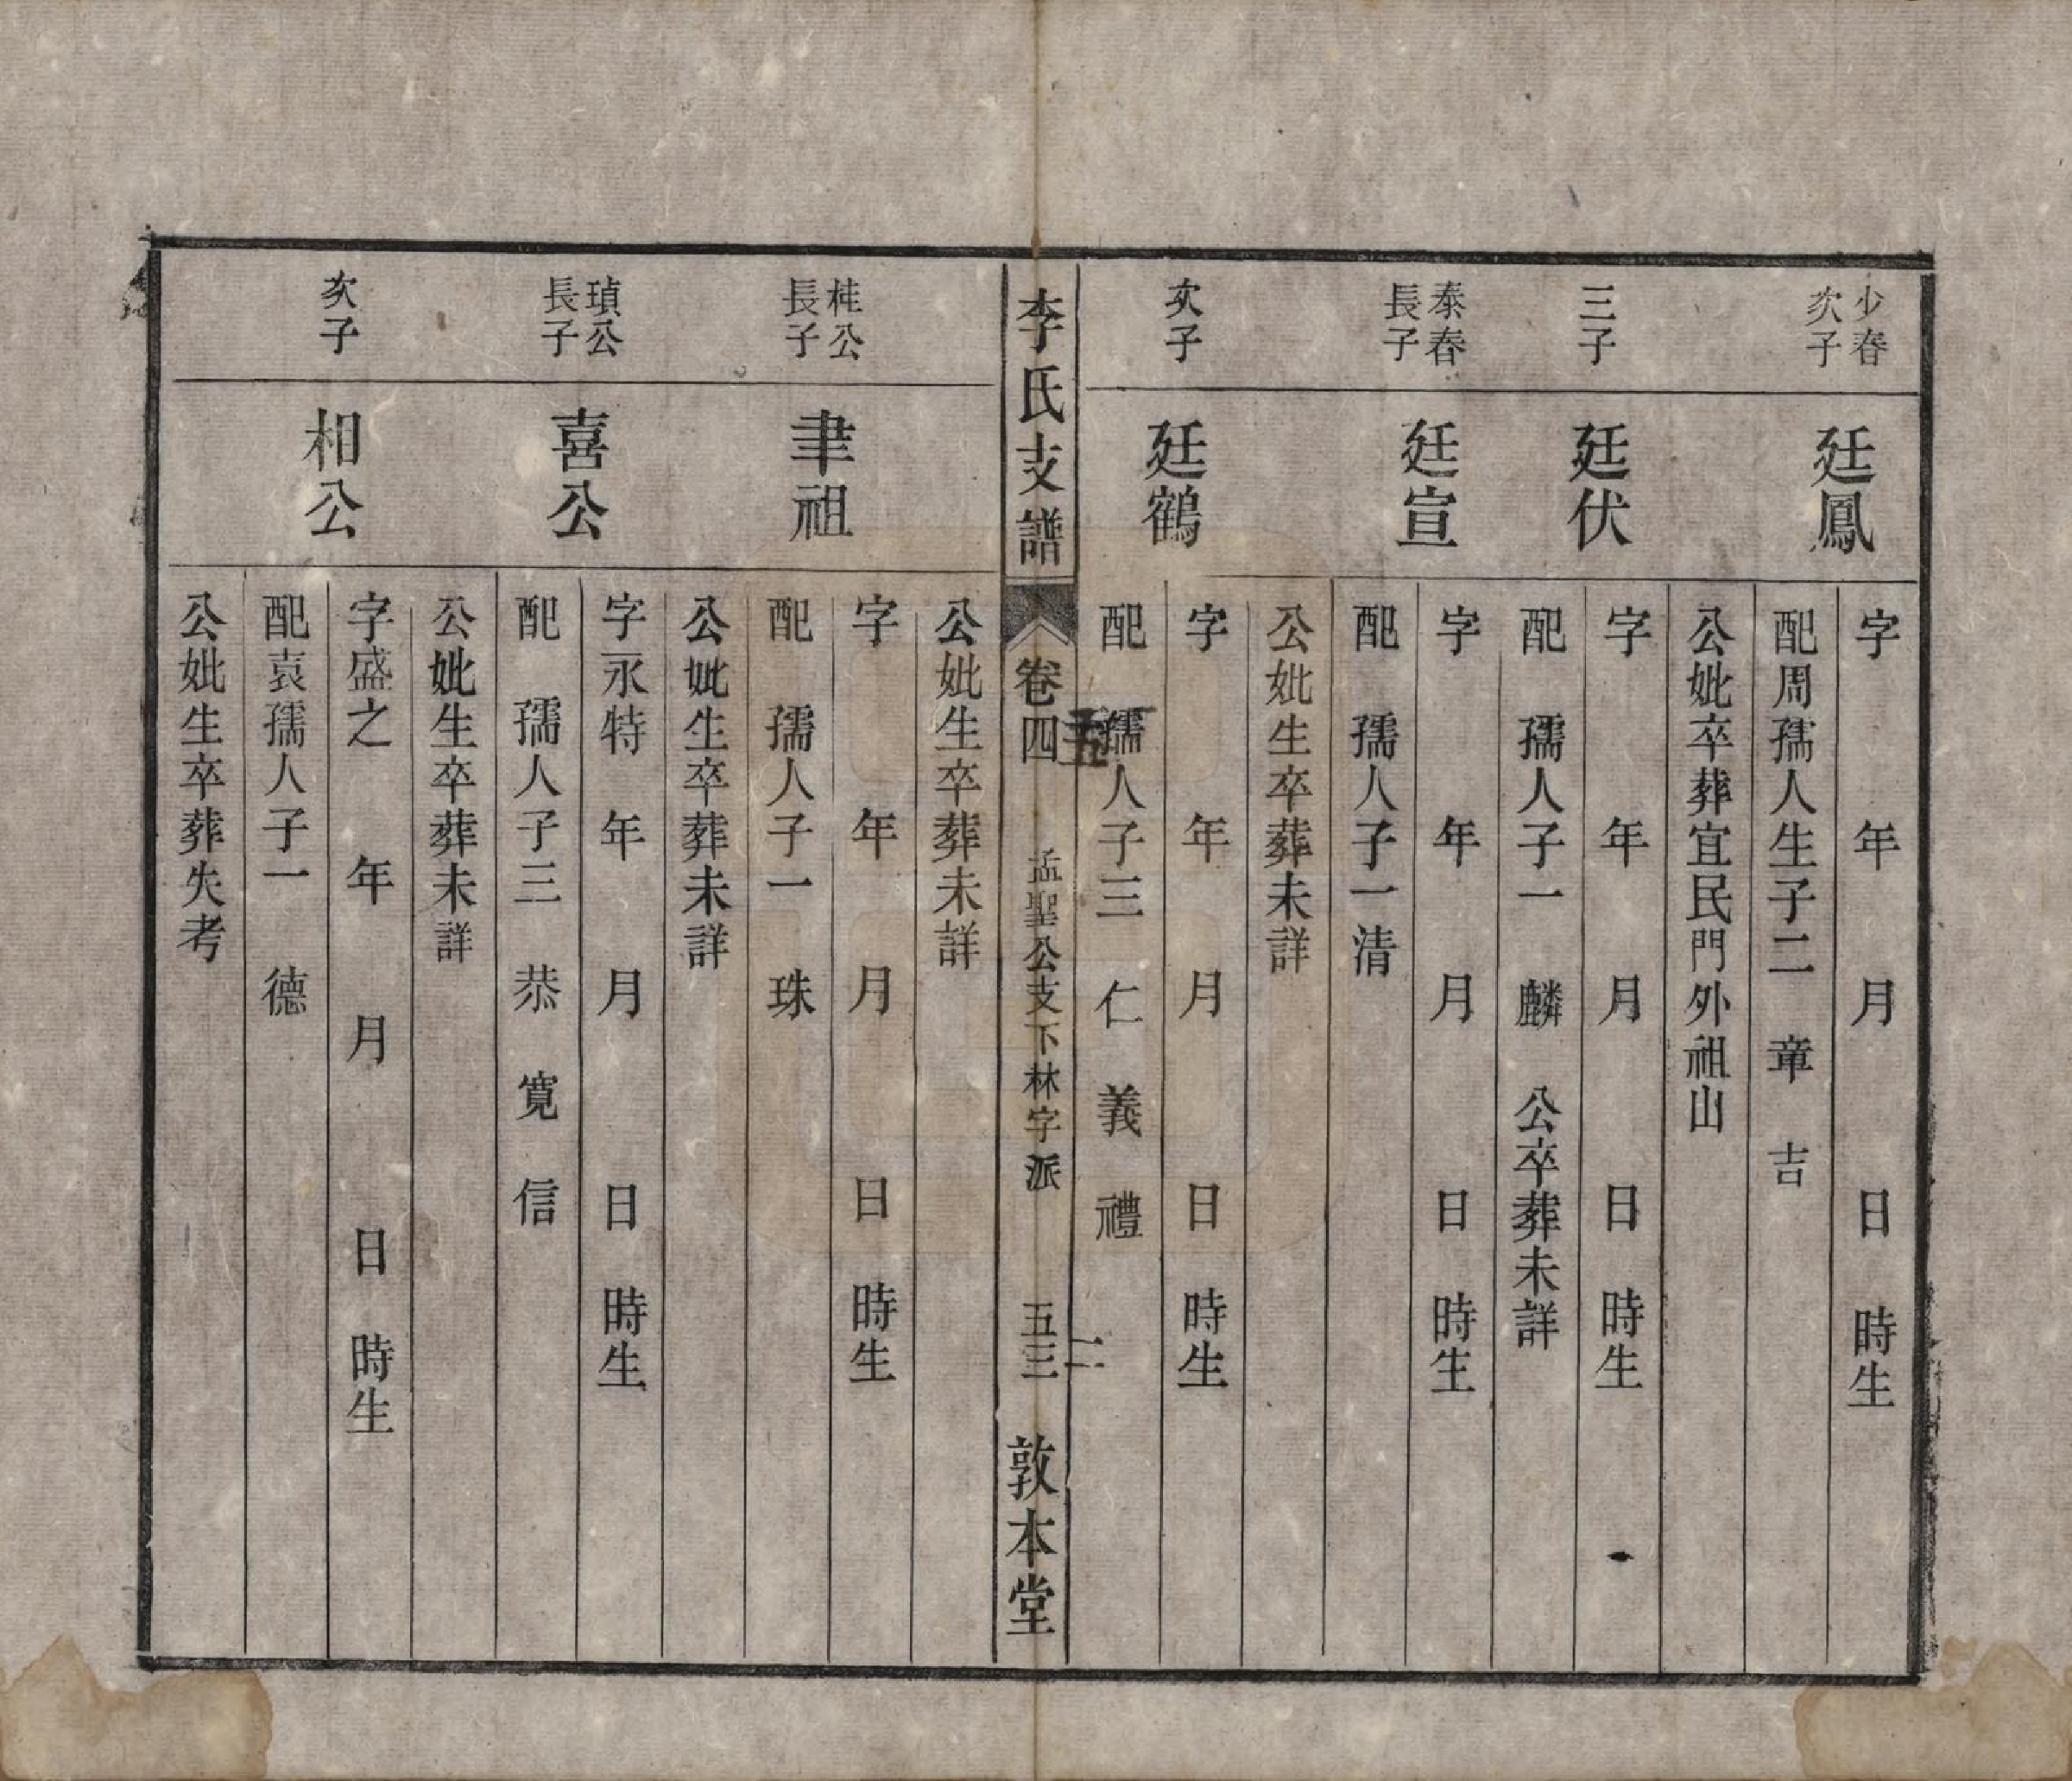 少春
次子
廷鳳
字 年 月 日 時生
配周孺人生子二 章 吉
公妣卒葬宜民門外祖山
三子
廷伏
字 年 月 日 時生
配 孺人子一 麟 公卒葬未詳
泰春
長子
廷宣
字 年 月 日 時生
配 孺人子一清
公妣生卒葬未詳
次子
廷鶴
字 年 月 日 時生
配 孺人子三 仁 義 禮
李氏支譜 卷四 孟聖公支下林字派 五三 敦本堂
五 二
公妣生卒葬未詳
桂公
長子
聿祖
字 年 月 日 時生
配 孺人子一 珠
公妣生卒葬未詳
瑱公
長子
喜公
字永特 年 月 日 時生
配 孺人子三 恭 寬 信
公妣生卒葬未詳
次子
相公
字盛之 年 月 日 時生
配袁孺人子一 德
公妣生卒葬失考